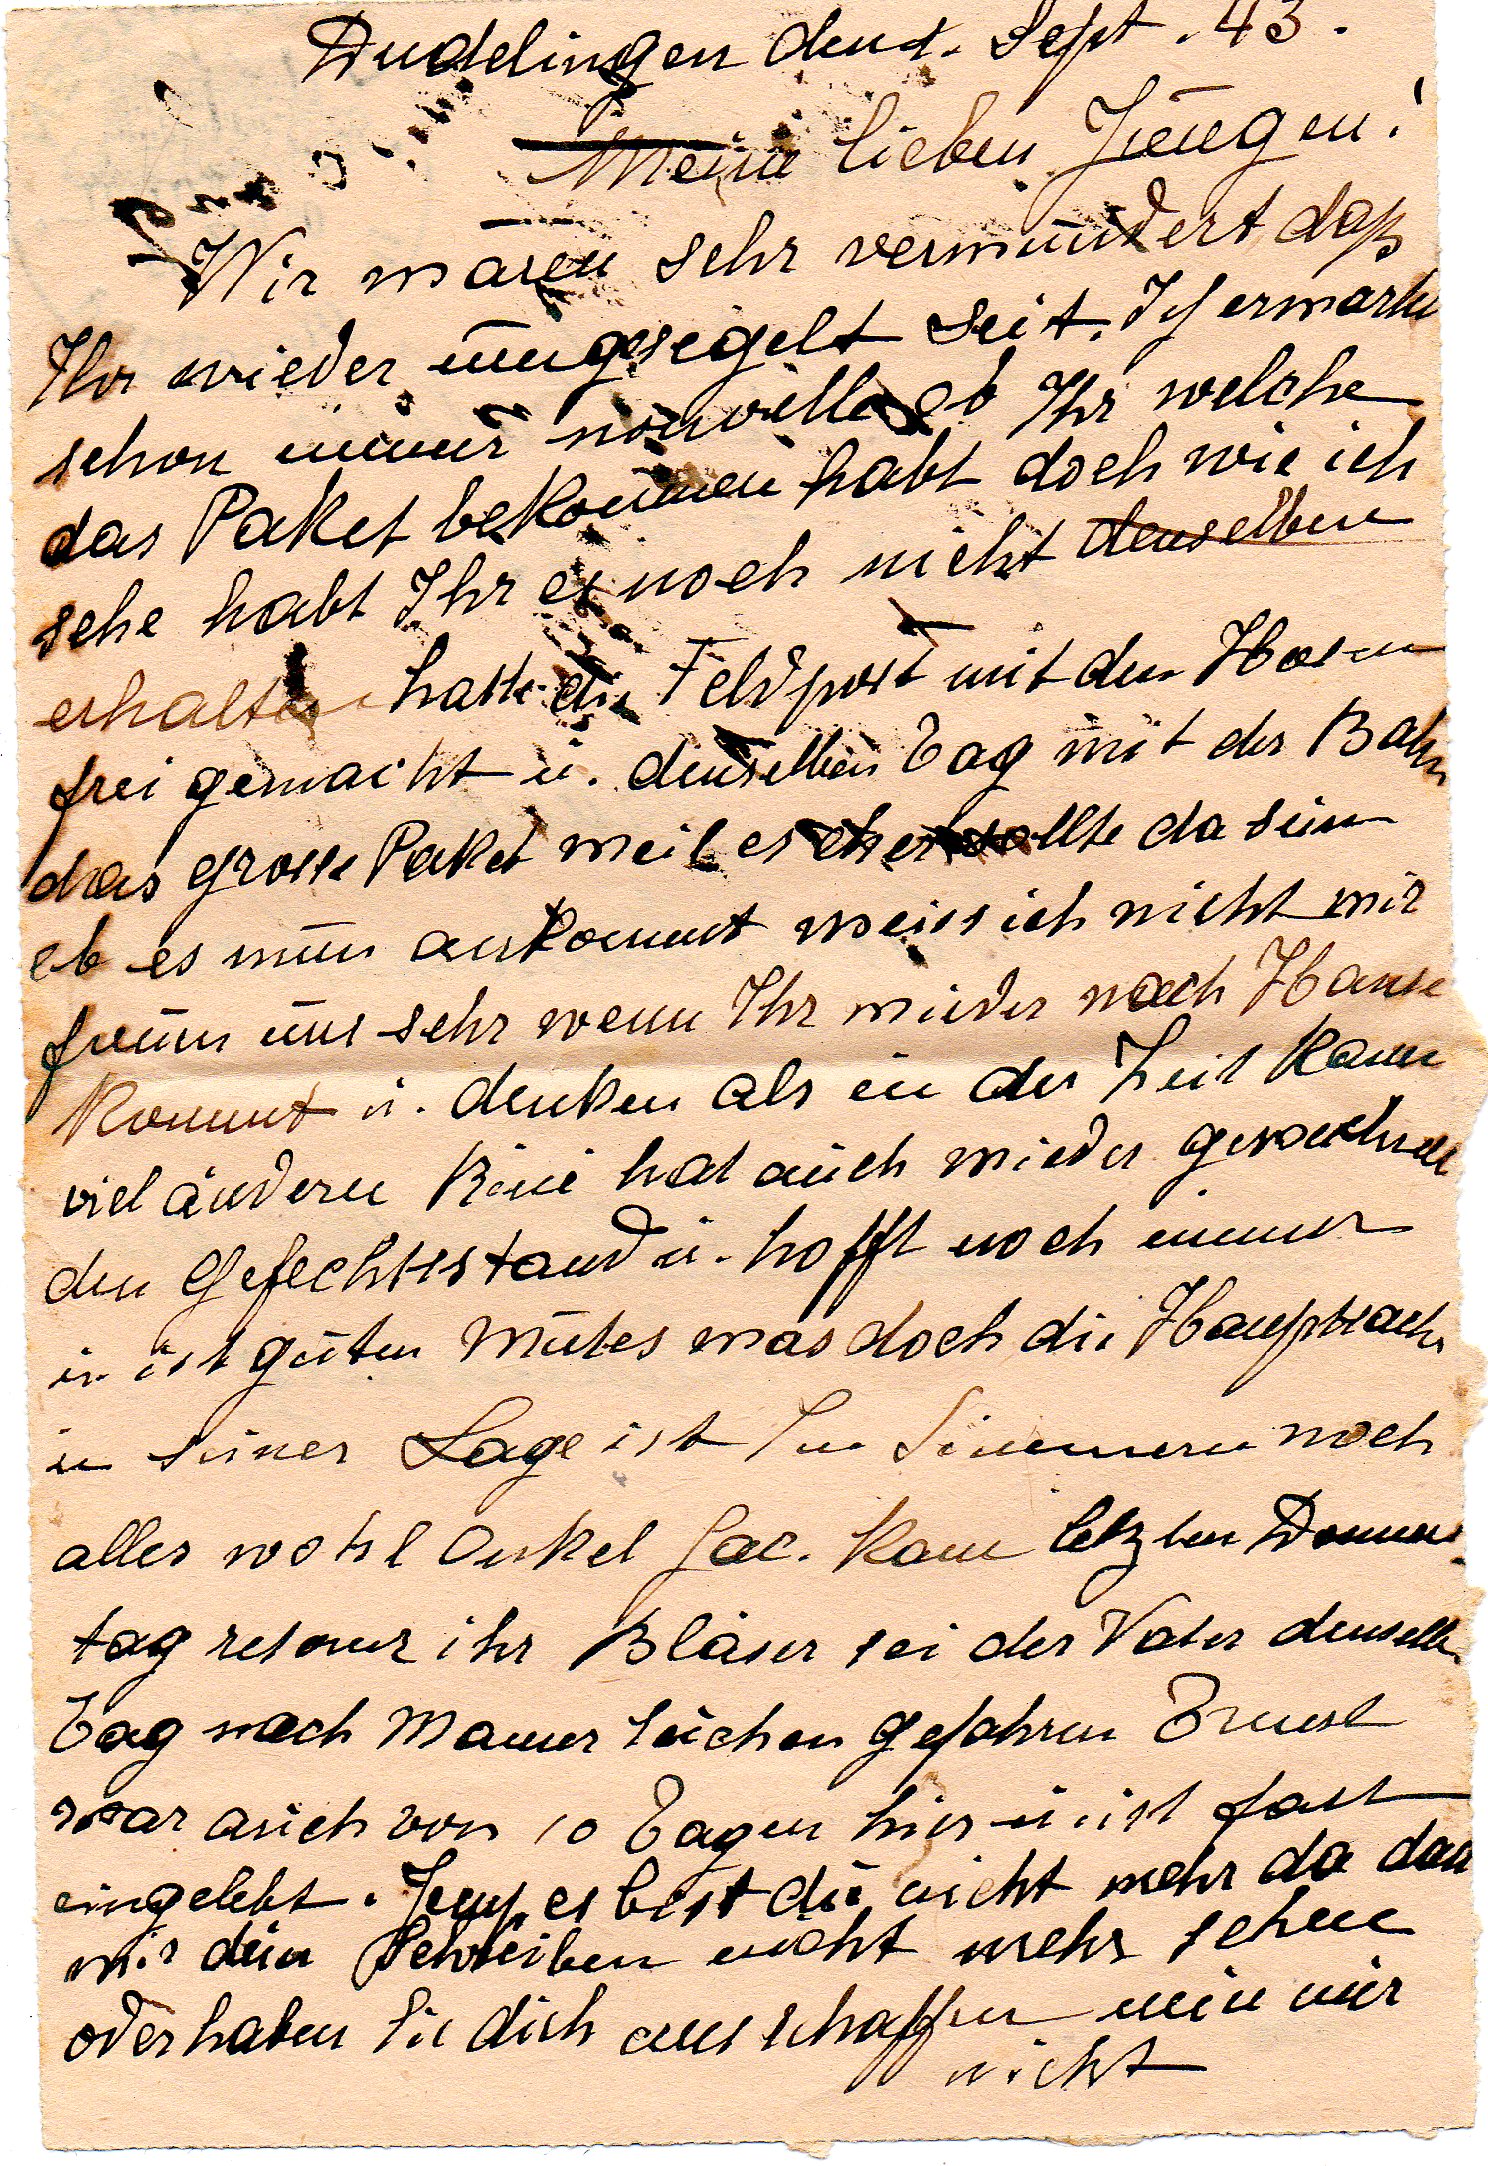 Dudelingen den 1. Sept. 43.
Meine lieben Jungen!
Wir waren sehr verwundert daß
Ihr wieder umgesegelt seit. Ich erwarte
schon immer nouvelle ob Ihr welche
das Paket bekommen habt doch wie ich
sehe habt Ihr es noch nicht denselben
erhalten hatte die Feldpost mit den Hosen
frei gemacht u. denselben Tag mit der Bahn
das grosse Paket weil es eher sollte da sein
ob es nun ankommt weiss ich nicht wir
freuen uns sehr wenn Ihr wieder nach Hause
kommt u. denken als in der Zeit kann
viel ändern hat auch wieder gewechselt
den Gefechtsstand u. hofft noch immer
u. ist guten Mutes was doch die Hauptsache
in seiner Lage ist In Simmern noch
alles wohl Onkel Jac. kam letzten Donners
tag retour ihr Bläser sei der Vater denselb.
Tag nach Mamer gefahren Ernest
war auch vor 10 Tagen hier u. ist fast
eingelebt. Jemp es bist du nicht mehr da dass
wir dein Schreiben nicht mehr sehen
oder haben Sie dich nur
nicht